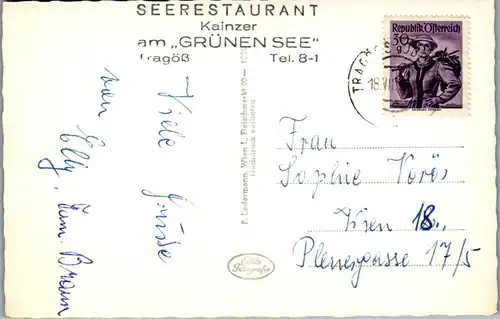 SEERESTAURANT
Kainzer
am „GRÜNEN SEE"
Tragöß Tel. 8-1
Viele Grüsse
von Elly, Fam. Braun
P. Ledermann, Wien I., Fleischmarkt 20 —
Nachdruck verboten
Echte
Fotografie
TRAGÖSS
18.
Republik Österreich
30
Frau
Sophie Vörös
Wien 18.,
Plenergasse 17/5